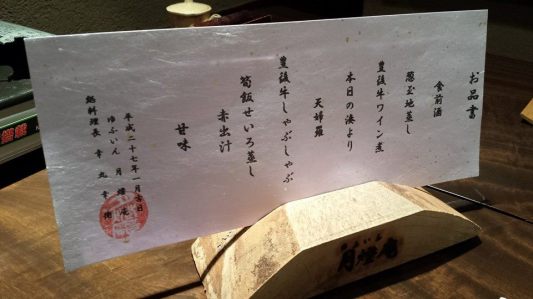 お品書
食前酒
葱玉地蒸し
豊後牛ワイン煮
本日の湊より
天婦羅
豊後牛しゃぶしゃぶ
筍飯せいろ蒸し
赤出汁
甘味
平成二十七年一月吉日
ゆふいん 月燈庵
総料理長
月燈庵